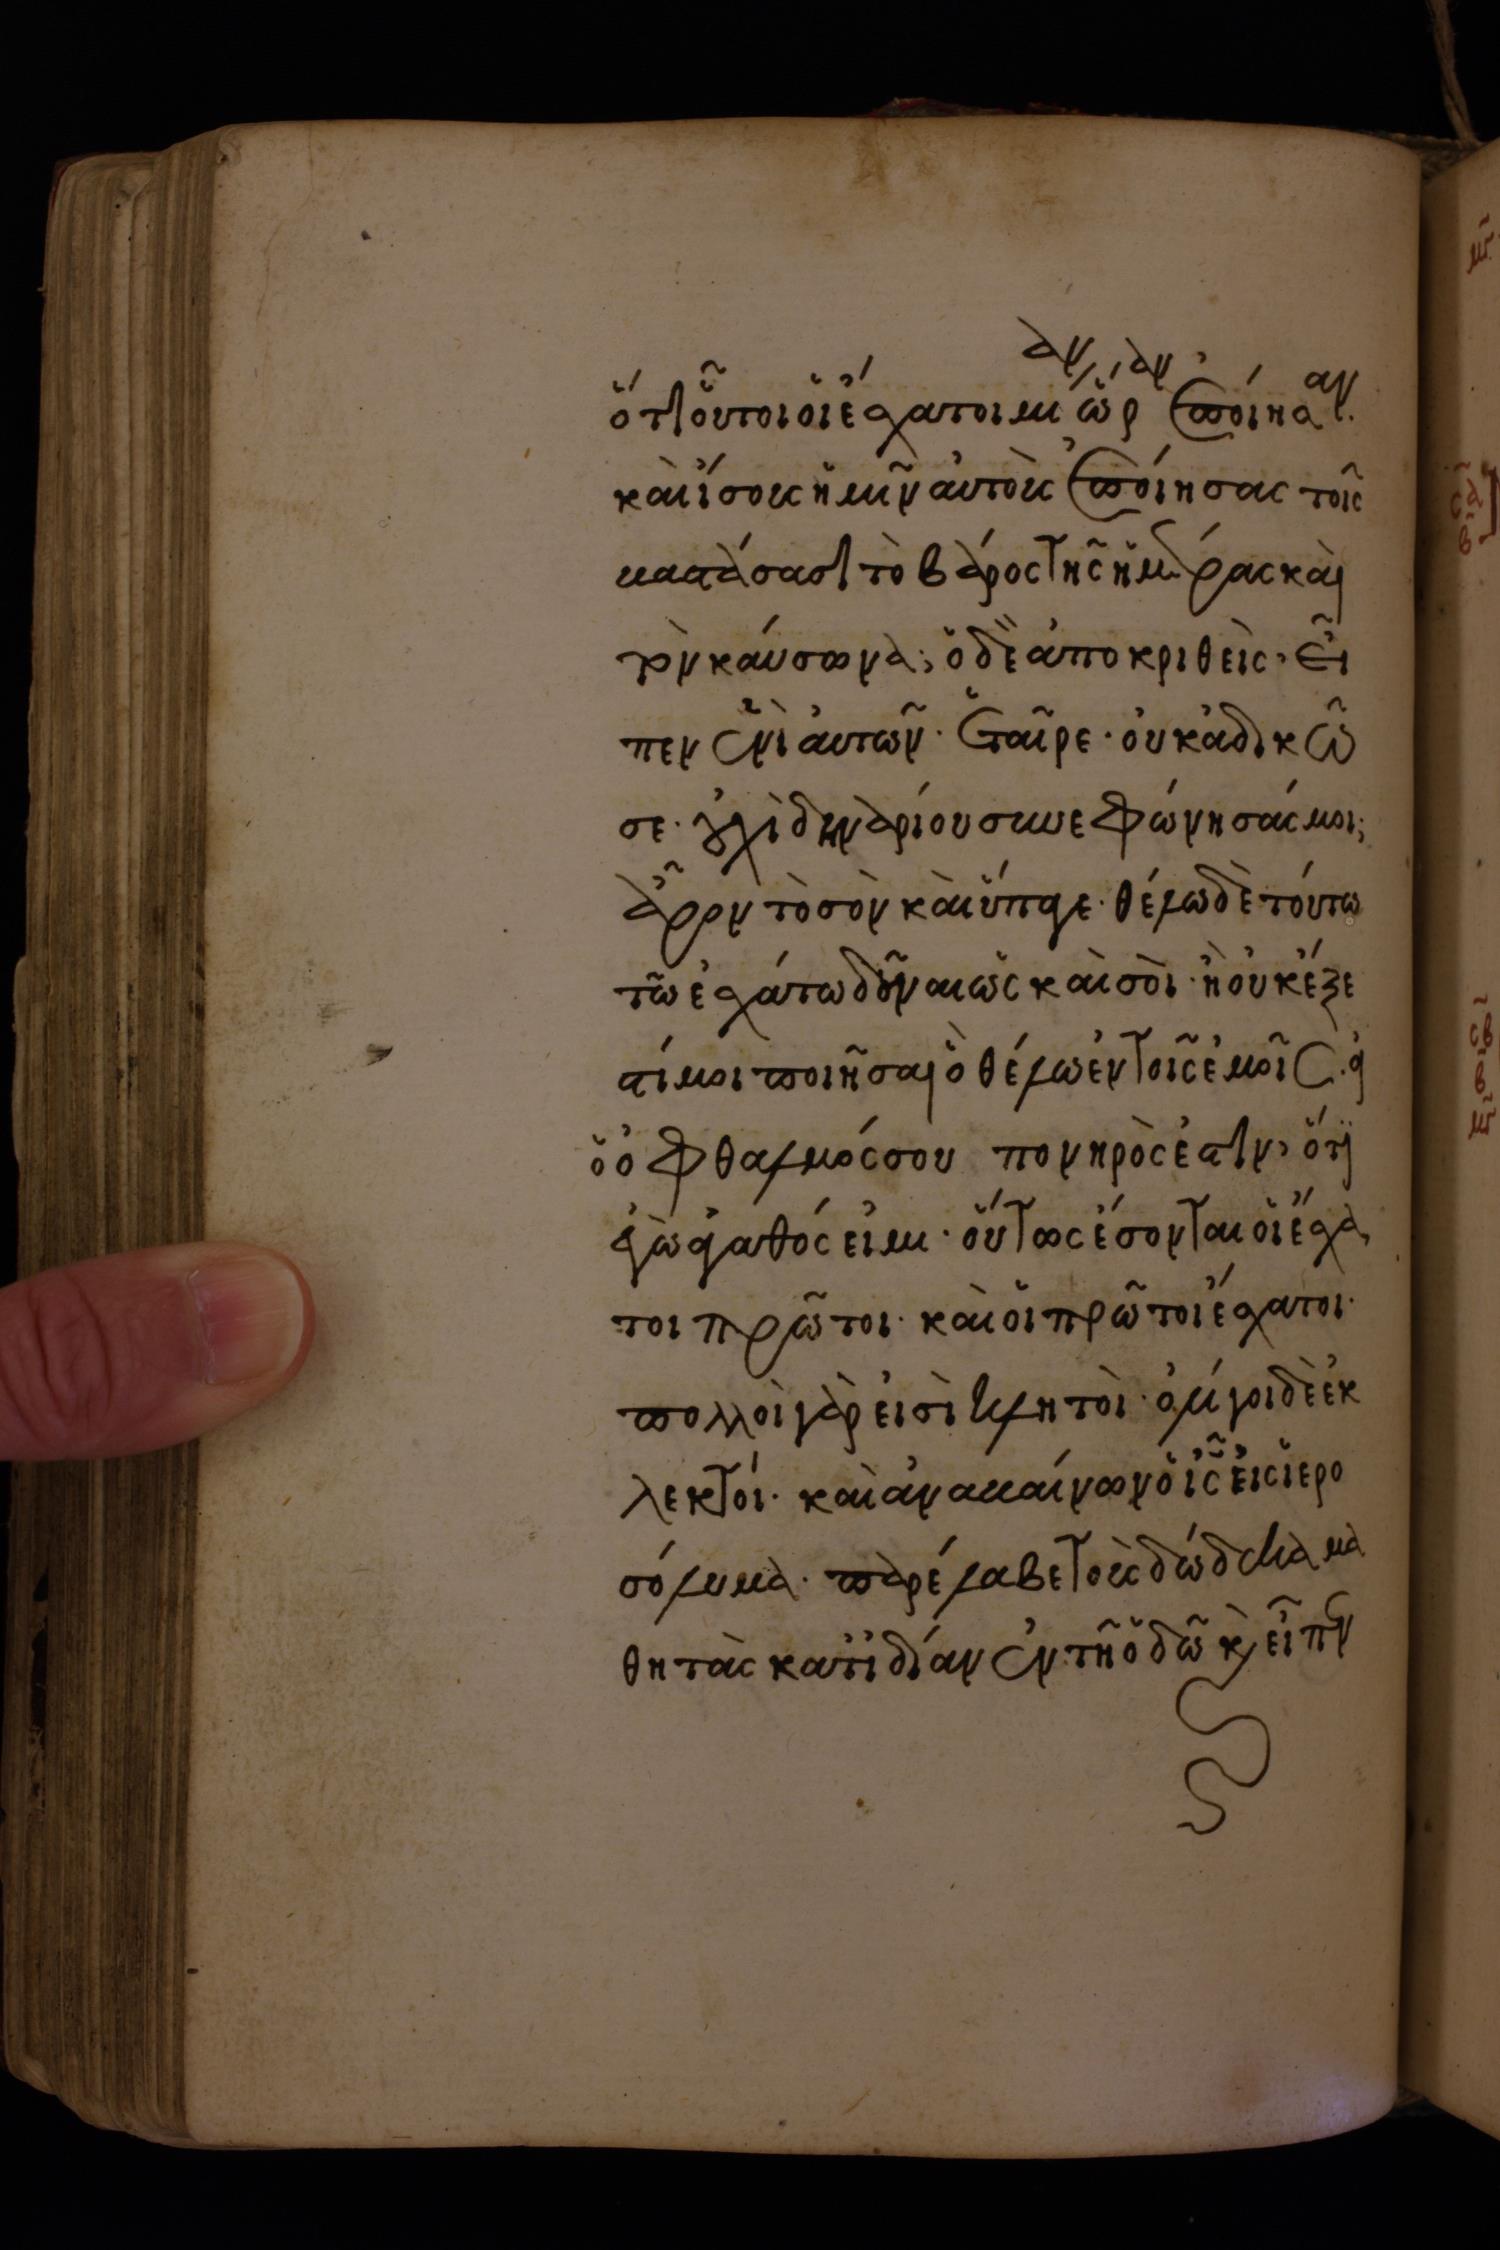 ὅτι οὗτοι οἱ ἔσχατοι μίαν ὥραν ἐποίησαν.
καὶ ἴσους ἡμῖν αὐτοὺς ἐποίησας τοῖς
βαστάσασι τὸ βάρος τῆς ἡμέρας καὶ
τὸν καύσωνα; ὁ δὲ ἀποκριθεὶς, εἶ
πεν ἑνὶ αὐτῶν· ἑταῖρε· οὐκ ἀδικῶ
σε· οὐχὶ δηναρίου συνεφώνησάς μοι;
ἆρον τὸ σὸν καὶ ὕπαγε· θέλω δὲ τούτω
τῶ ἐσχάτω δοῦναι ὡς καὶ σοὶ· ἢ οὐκ ἔξε
στί μοι ποιῆσαι ὃ θέλω ἐν τοῖς ἐμοῖς· εἰ
ὁ ὀφθαλμός σου πονηρὸς ἐστιν, ὅτι
ἐγὼ ἀγαθός εἰμι· οὕτως ἔσονται οἱ ἔσχα
τοι πρῶτοι· καὶ οἱ πρῶτοι ἔσχατοι·
πολλοὶ γὰρ εἰσὶ κλητοὶ· ὀλίγοι δὲ ἐκ
λεκτοί· καὶ ἀναβαίνων ὁ ις εἰς ἱερο
σόλυμα· παρέλαβε τοὺς δώδεκα μα
θητὰς κατ ἰδίαν ἐν τῆ ὁδῶ κ εἶπεν